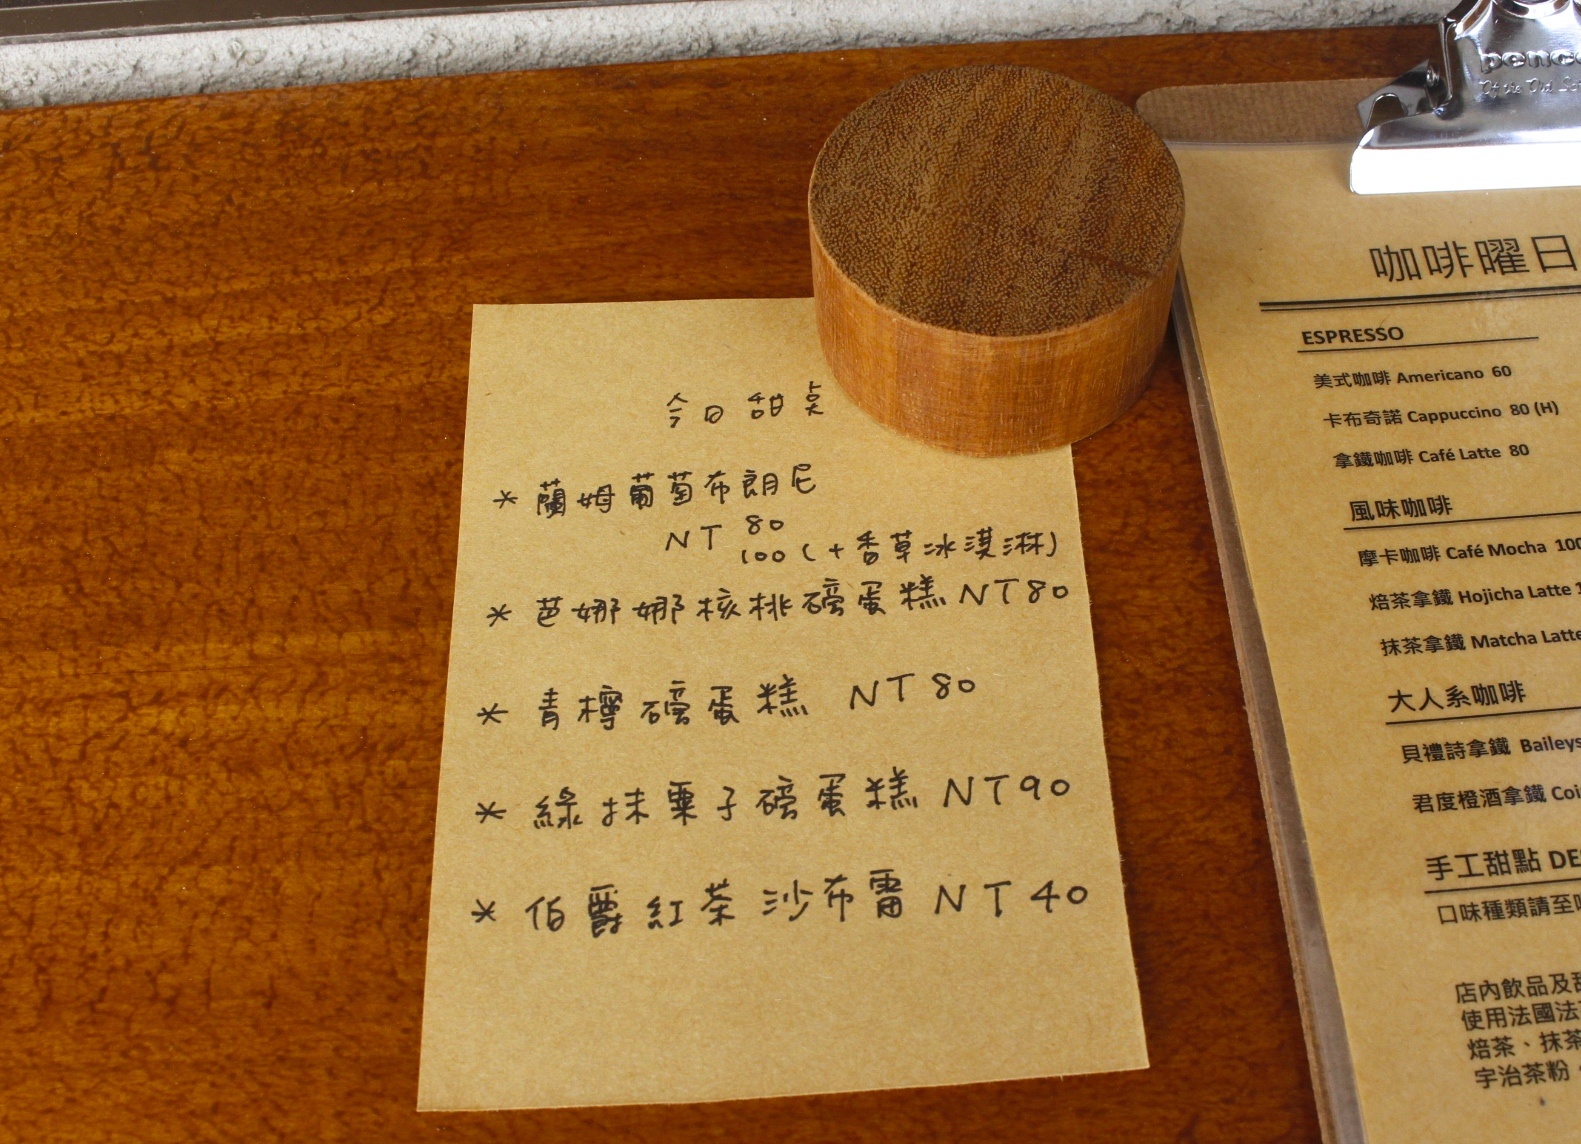 今日甜点
* 蘭姆葡萄布朗尼
NT 80
100 (+香草冰淇淋)
* 芭娜娜核桃磅蛋糕 NT80
* 青檸磅蛋糕 NT80
* 綠抹栗子磅蛋糕 NT90
* 伯爵紅茶沙布雷 NT40
penco
咖啡曜日
ESPRESSO
美式咖啡 Americano 60
卡布奇諾 Cappuccino 80 (H)
拿鐵咖啡 Café Latte 80
風味咖啡
摩卡咖啡 Café Mocha 100
焙茶拿鐵 Hojicha Latte
抹茶拿鐵 Matcha Latte
大人系咖啡
貝禮詩拿鐵 Baileys
君度橙酒拿鐵 Coi
手工甜點 DE
口味種類請至
店內飲品及
使用法國法
焙茶、抹茶
宇治茶粉